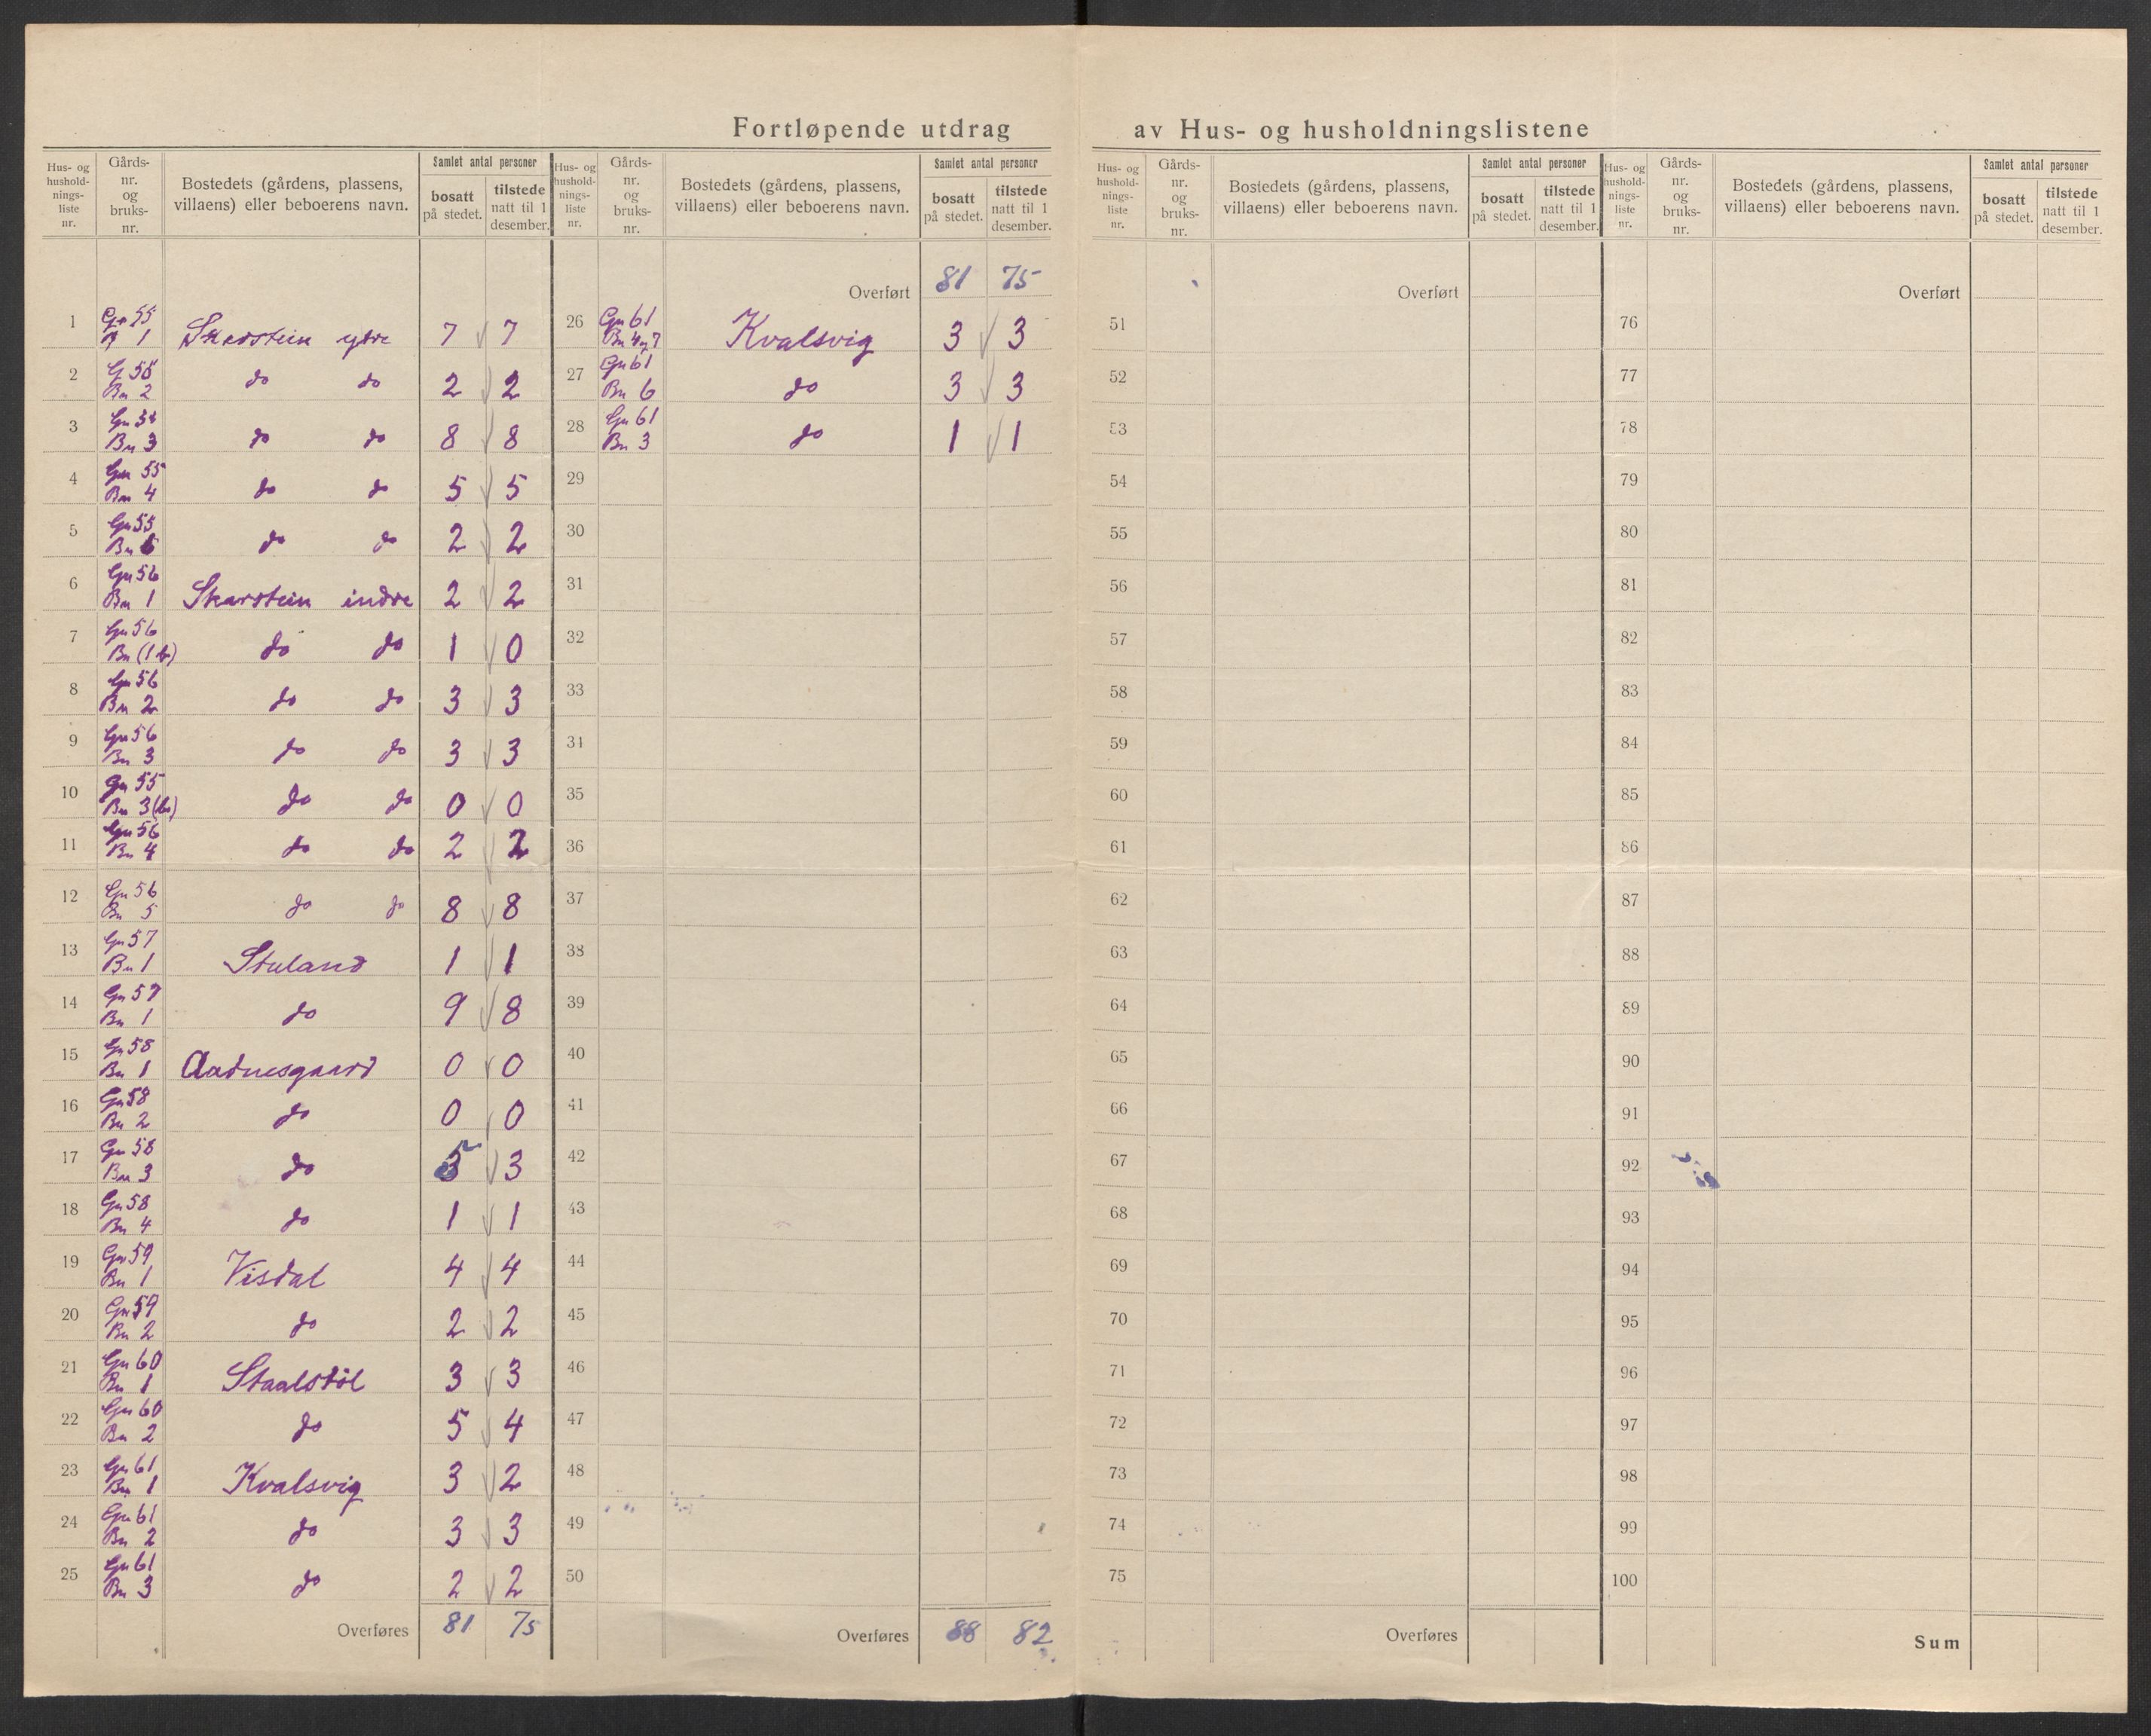 Fortløpende utdrag av Hus- og husholdningslistene
Hus- og hushold-nings-liste nr. | Gårds-nr. og bruks-nr. | Bostedets (gårdens, plassens, villaens) eller beboerens navn. | Samlet antal personer | bosatt på stedet. | tilstede natt til 1 desember.
1 | 55 1 | Skarstein ytre | 7 | 7
2 | G 55 Bn 2 | do do | 2 | 2
3 | Gn 55 Bn 3 | do do | 8 | 8
4 | Gn 55 Bn 4 | do do | 5 | 5
5 | Gn 55 Bn 6 | do do | 2 | 2
6 | Gn 56 Bn 1 | Skarstein indre | 2 | 2
7 | Gn 56 Bn (1 b) | do do | 1 | 0
8 | Gn 56 Bn 2 | do do | 3 | 3
9 | Gn 56 Bn 3 | do do | 3 | 3
10 | Gn 55 Bn 3 | do do | 0 | 0
11 | Gn 56 Bn 4 | do do | 2 | 2
12 | Gn 56 Bn 5 | do do | 8 | 8
13 | Gn 57 Bn 1 | Stuland | 1 | 1
14 | Gn 57 Bn 1 | do | 9 | 8
15 | Gn 58 Bn 1 | Aadnesgaard | 0 | 0
16 | Gn 58 Bn 2 | do | 0 | 0
17 | Gn 58 Bn 3 | do | 5 | 3
18 | Gn 58 Bn 4 | do | 1 | 1
19 | Gn 59 Bn 1 | Visdal | 4 | 4
20 | Gn 59 Bn 2 | do | 2 | 2
21 | Gn 60 Bn 1 | Staalstöl | 3 | 3
22 | Gn 60 Bn 2 | do | 5 | 4
23 | Gn 61 Bn 1 | Kvalsvig | 3 | 2
24 | Gn 61 Bn 2 | do | 3 | 3
25 | Gn 61 Bn 3 | do | 2 | 2
Overføres | 81 | 75
Hus- og hushold-nings-liste nr. | Gårds-nr. og bruks-nr. | Bostedets (gårdens, plassens, villaens) eller beboerens navn. | Samlet antal personer | bosatt på stedet. | tilstede natt til 1 desember.
Overført | 81 | 75
26 | Gn 61 Bn 4 og 7 | Kvalsvig | 3 | 3
27 | Gn 61 Bn 6 | do | 3 | 3
28 | Gn 61 Bn 3 | do | 1 | 1
29
30
31
32
33
34
35
36
37
38
39
40
41
42
43
44
45
46
47
48
49
50
Overføres | 88 | 82
Hus- og hushold-nings-liste nr. | Gårds-nr. og bruks-nr. | Bostedets (gårdens, plassens, villaens) eller beboerens navn. | Samlet antal personer | bosatt på stedet. | tilstede natt til 1 desember.
Overført
51
52
53
54
55
56
57
58
59
60
61
62
63
64
65
66
67
68
69
70
71
72
73
74
75
Overføres
Hus- og hushold-nings-liste nr. | Gårds-nr. og bruks-nr. | Bostedets (gårdens, plassens, villaens) eller beboerens navn. | Samlet antal personer | bosatt på stedet. | tilstede natt til 1 desember.
Overført
76
77
78
79
80
81
82
83
84
85
86
87
88
89
90
91
92
93
94
95
96
97
98
99
100
Sum